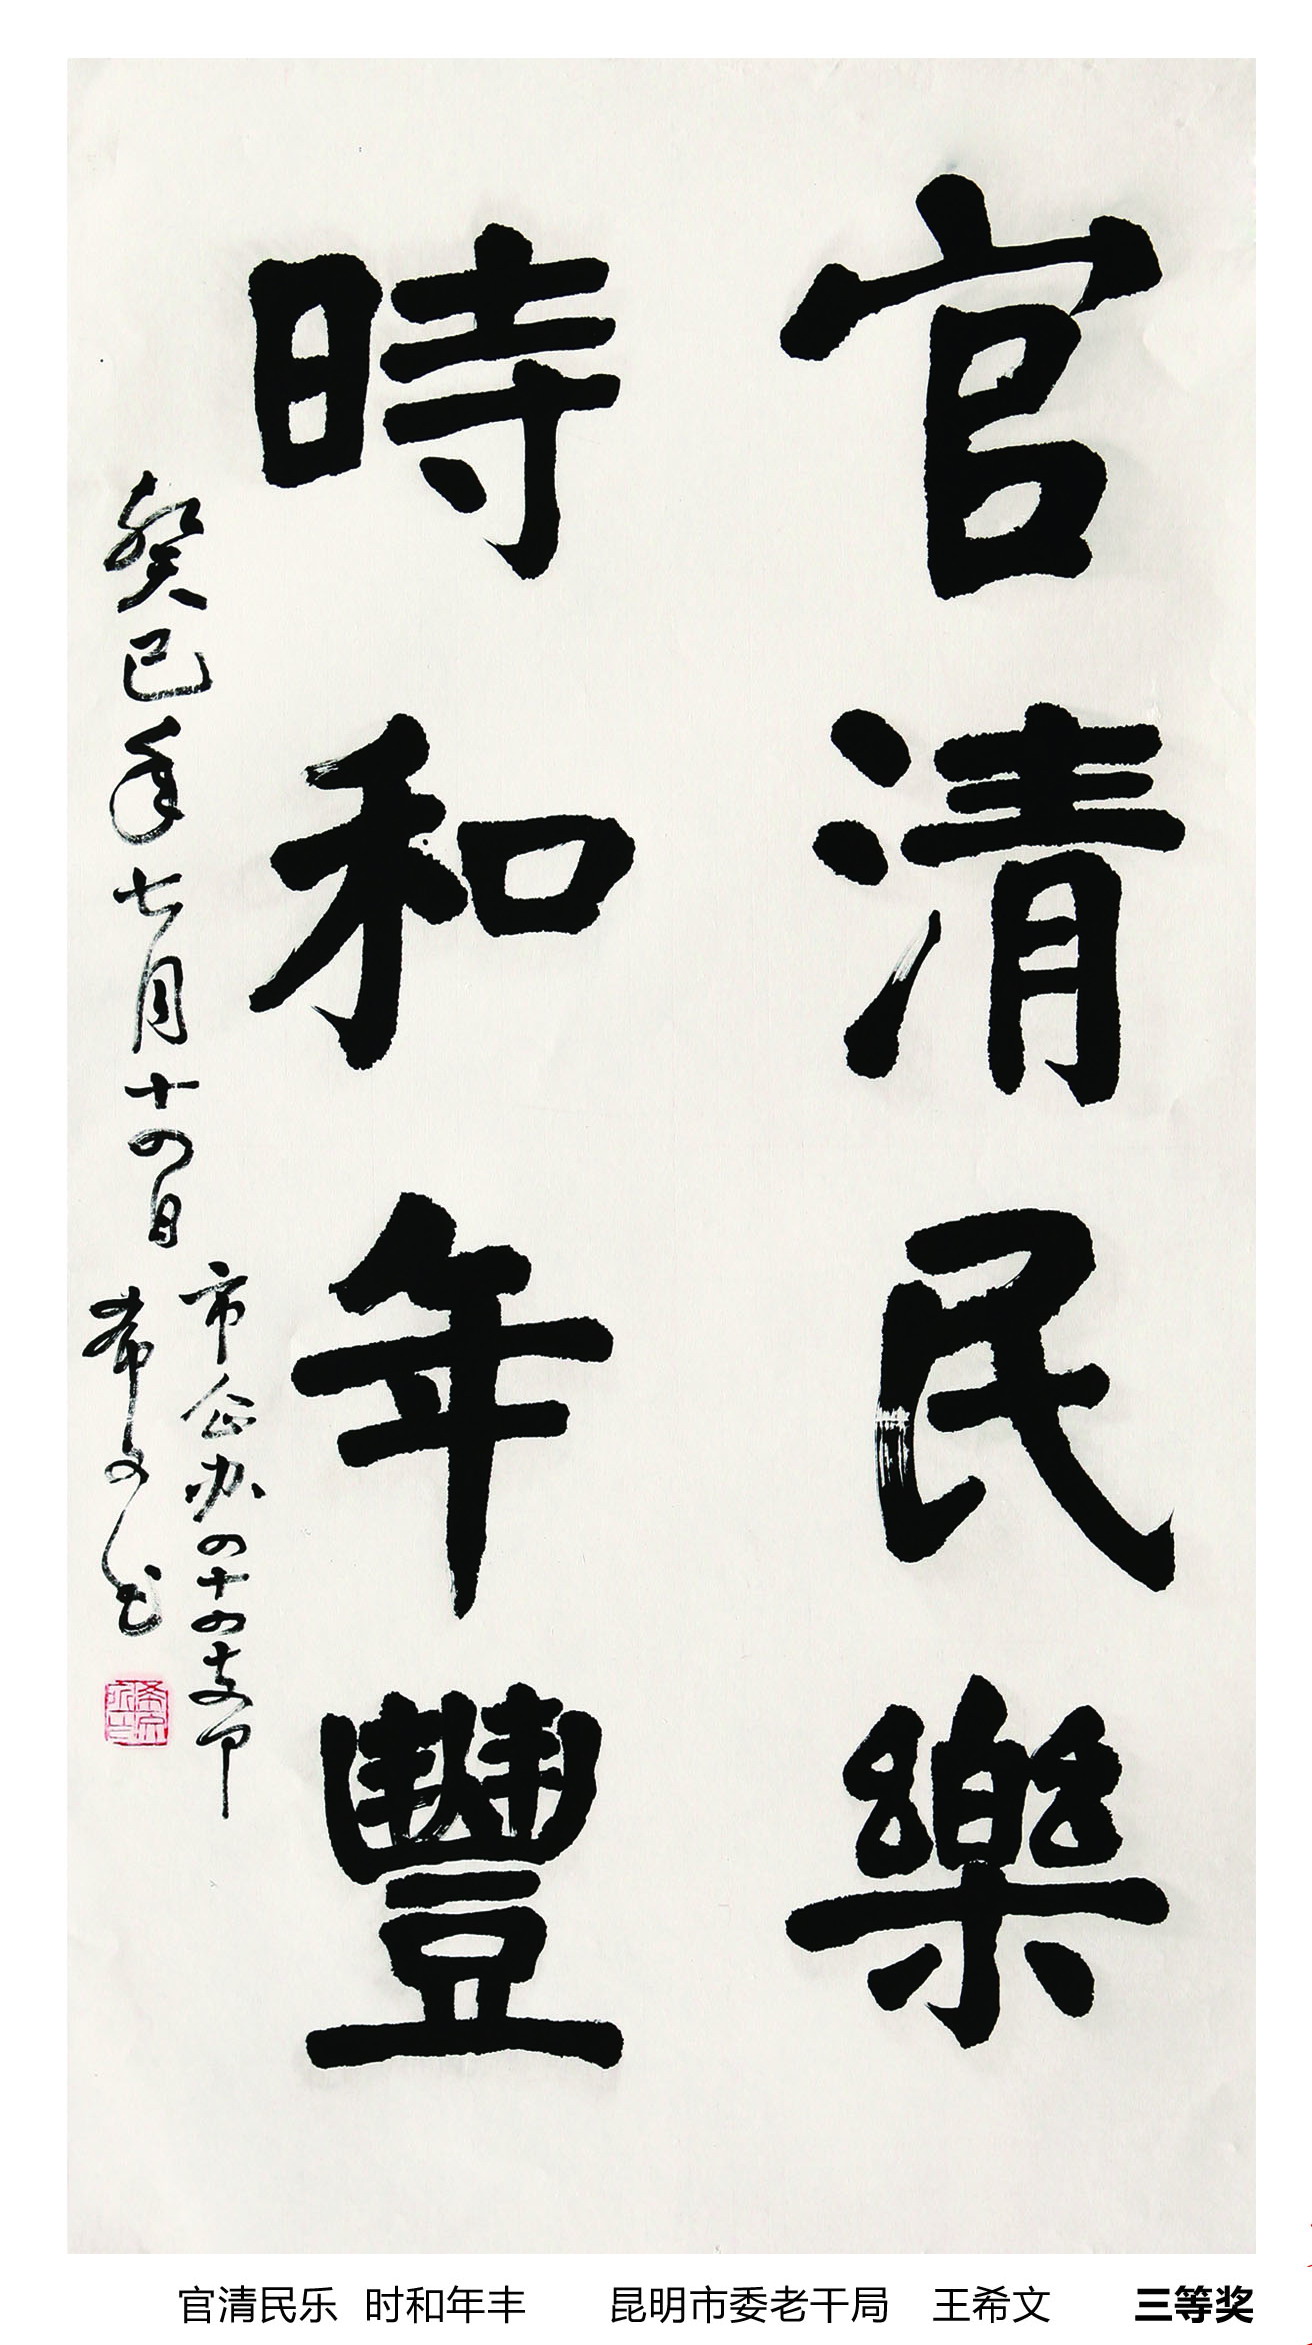 官清民樂
時和年豐
癸巳年七月十四日
市企办四十四支部
希文书
官清民乐 时和年丰 昆明市委老干局 王希文 三等奖